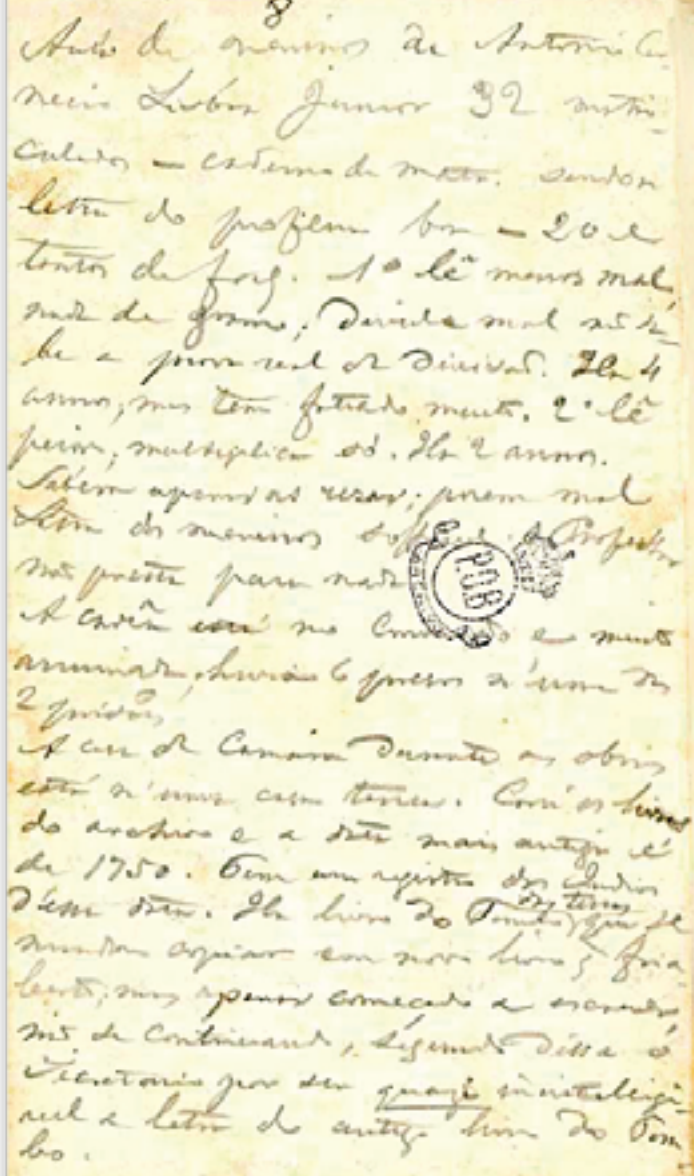 8
Aula de meninos de Antonio Ca-
necio Lisbôa Junior 32 matri-
culados – caderno de matr. sendo a
letra do professor boa – 20 e
tantos de freq. 1º lê menos mal,
nada de gramm., divide mal não sa-
be a prova real da divisão. Ha 4
annos, mas tem faltado muito. 2º lê
peior, multiplica só. Ha 2 annos.
Sabem apenas rezar; porem mal
Letra dos meninos soffrivel. o Professor
não presta para nada
A cadêa está no Convento e muito
arruinada, havia 6 presos n'uma das
2 prisões
A casa da Camara durante as obras
está n'uma casa terrea. Corri os livros
do archivo e a data mais antiga é
de 1750. Tem um registro dos Indios
d'essa data. Ha livro do Tombo das terras que se
mandou copiar em novo livro, foi a-
berto, mas apenas começado a escrever,
não se continuando, segundo disse o
Secretario por ser quazi inintelligi-
vel a letra do antigo livro do Tom
bo.
P.O.B